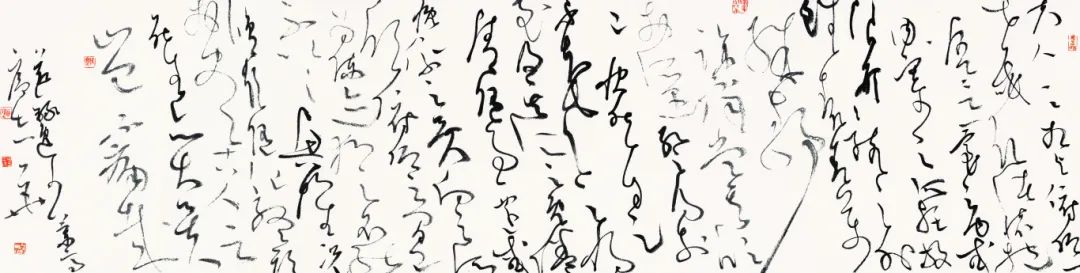 夫人之相与俯仰
一世或取诸怀抱
悟言一室之内或
因寄所托放
浪形骸之外
虽趣舍万
殊静
躁不同当其欣
于所遇暂得
于己快然自足
不知老之将
至及其所之既倦
情随事迁感
慨系之矣向之所
欣俯仰之间
已为陈迹犹不能
不以之兴怀况
修短随化终期
于尽古人云
死生亦大矣
岂不痛哉